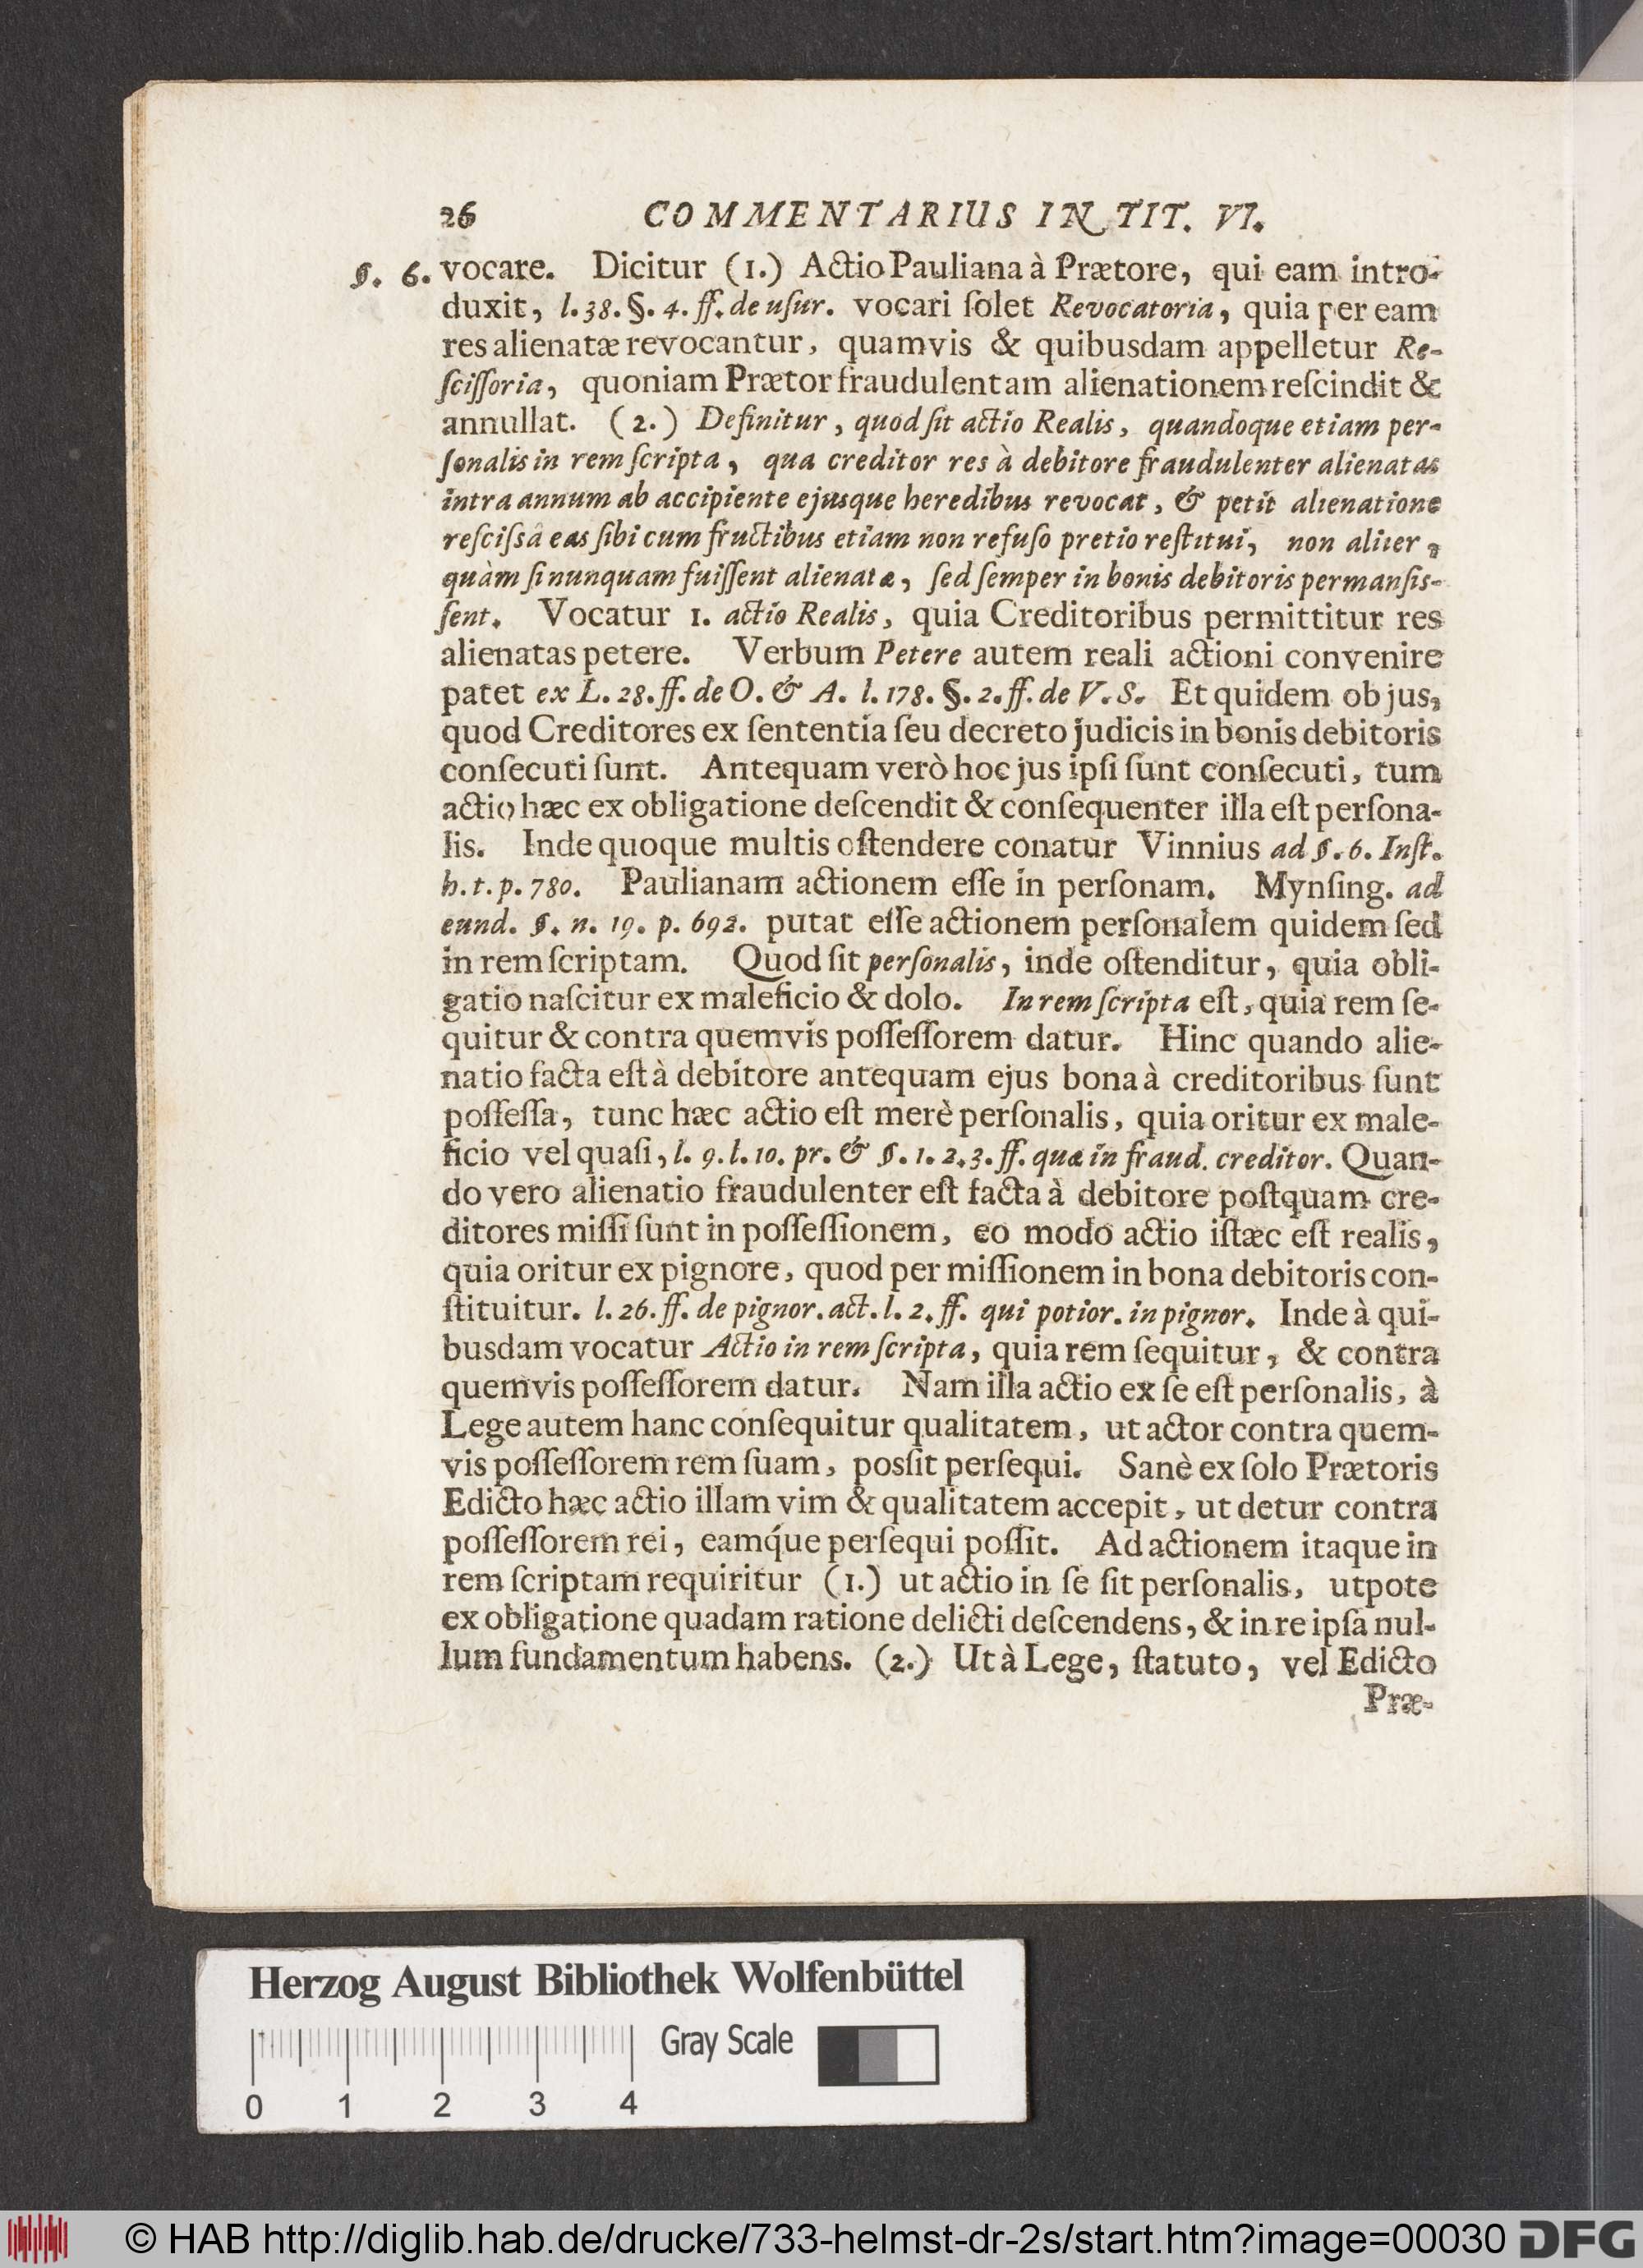 26 COMMENTARIUS IN TIT. VI.
§. 6. vocare. Dicitur (1.) Actio Pauliana à Prætore, qui eam intro-
duxit, l. 38. §. 4. ff. de uſur. vocari ſolet Revocatoria, quia per eam
res alienatæ revocantur, quamvis & quibusdam appelletur Re-
ſciſſoria, quoniam Prætor fraudulentam alienationem reſcindit &
annullat. (2.) Definitur, quod ſit actio Realis, quandoque etiam per-
ſonalis in rem ſcripta, qua creditor res à debitore fraudulenter alienatas
intra annum ab accipiente ejusque heredibus revocat, & petit alienatione
reſciſsâ eas ſibi cum fructibus etiam non refuſo pretio reſtitui, non aliter,
quàm ſi nunquam fuiſſent alienatæ, ſed ſemper in bonis debitoris permanſis-
ſent. Vocatur 1. actio Realis, quia Creditoribus permittitur res
alienatas petere. Verbum Petere autem reali actioni convenire
patet ex L. 28. ff. de O. & A. l. 178. §. 2. ff. de V. S. Et quidem ob jus,
quod Creditores ex ſententia ſeu decreto judicis in bonis debitoris
conſecuti ſunt. Antequam verò hoc jus ipſi ſunt conſecuti, tum
actio hæc ex obligatione deſcendit & conſequenter illa eſt perſona-
lis. Inde quoque multis oſtendere conatur Vinnius ad §. 6. Inſt.
h. t. p. 780. Paulianam actionem eſſe in perſonam. Mynſing. ad
eund. §. n. 19. p. 692. putat eſſe actionem perſonalem quidem ſed
in rem ſcriptam. Quod ſit perſonalis, inde oſtenditur, quia obli-
gatio naſcitur ex maleficio & dolo. In rem ſcripta eſt, quia rem ſe-
quitur & contra quemvis poſſeſſorem datur. Hinc quando alie-
natio facta eſt à debitore antequam ejus bona à creditoribus ſunt
poſſeſſa, tunc hæc actio eſt merè perſonalis, quia oritur ex male-
ficio vel quaſi, l. 9. l. 10. pr. & §. 1. 2. 3. ff. quæ in fraud. creditor. Quan-
do vero alienatio fraudulenter eſt facta à debitore poſtquam cre-
ditores miſſi ſunt in poſſeſſionem, eo modo actio iſtæc eſt realis,
quia oritur ex pignore, quod per miſſionem in bona debitoris con-
ſtituitur. l. 26. ff. de pignor. act. l. 2. ff. qui potior. in pignor. Inde à qui-
busdam vocatur Actio in rem ſcripta, quia rem ſequitur, & contra
quemvis poſſeſſorem datur. Nam illa actio ex ſe eſt perſonalis, à
Lege autem hanc conſequitur qualitatem, ut actor contra quem-
vis poſſeſſorem rem ſuam, posſit perſequi. Sanè ex ſolo Prætoris
Edicto hæc actio illam vim & qualitatem accepit, ut detur contra
poſſeſſorem rei, eamq́ue perſequi poſſit. Ad actionem itaque in
rem ſcriptam requiritur (1.) ut actio in ſe ſit perſonalis, utpote
ex obligatione quadam ratione delicti deſcendens, & in re ipſa nul-
lum fundamentum habens. (2.) Ut à Lege, ſtatuto, vel Edicto
Præ-
Herzog August Bibliothek Wolfenbüttel
Gray Scale
0 1 2 3 4
© HAB http://diglib.hab.de/drucke/733-helmst-dr-2s/start.htm?image=00030 DFG